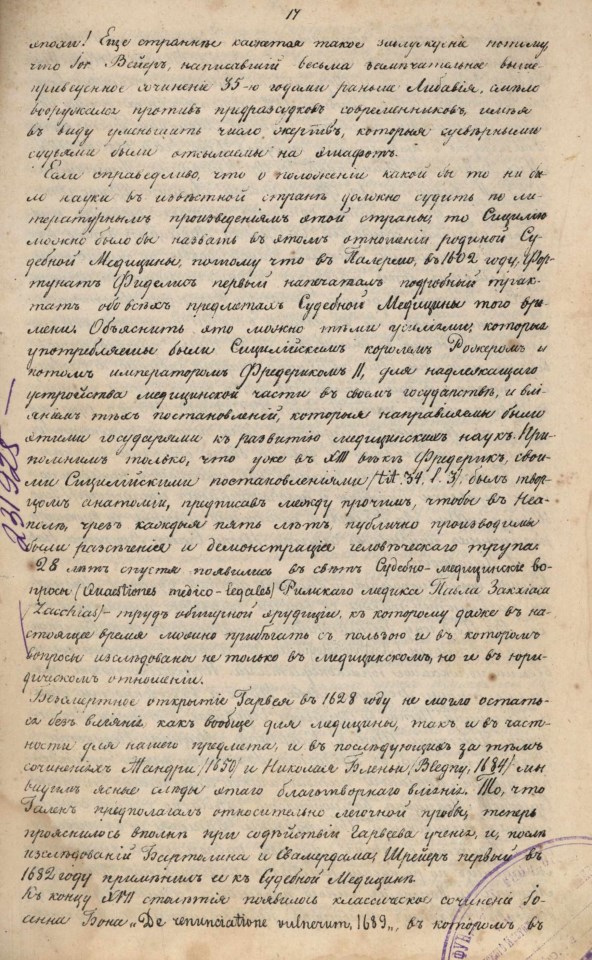 17
эпохи! Еще страннѣе кажется такое злыключеніе потому,
что Іог Вейеръ, написавшій весьма замѣчательное выше
приведенное сочиненіе 35-ю годами раньше Либавія, смѣло
вооружался противъ предразсудковъ современниковъ, имѣя
въ виду уменьшить число жертвъ, которыя суевѣрными
судьями были отсылаемы на эшафотъ.
Если справедливо, что о положеніи какой бы то ни бы
ло науки въ извѣстной странѣ должно судить по ли
тературнымъ произведеніямъ этой страны, то Сицилію
можно было бы назвать въ этомъ отношеніи родиной Су
дебной Медицины, потому что въ Палермо, въ 1602 году, Фор
тунатъ Фиделисъ первый напечаталъ подробный трак
татъ обо всѣхъ предметахъ Судебной Медицины того вре
мени. Объяснить это можно тѣми усиліями, которыя
употребляемы были Сицилійскимъ королемъ Рожеромъ и
потомъ императоромъ Фредерикомъ II, для надлежащаго
устройства медицинской части въ своемъ государствѣ, и влі
яніемъ тѣхъ постановленій, которыя направляемы были
этими государями къ развитію медицинскихъ наукъ. При
помнимъ только, что уже въ XIII вѣкѣ Фредерикъ, свои
ми Сицилійскими постановленіями /tit. 34. l. 3/, былъ твор
цомъ анатоміи, предписавъ между прочимъ, чтобы въ Неа
полѣ, чрезъ каждыя пять лѣтъ, публично производимы
были разсѣченія и демонстраціи человѣческаго трупа.
28 лѣтъ спустя появились въ свѣтъ Судебно-медицинскіе во
просы (Quaestiones medico-legales) Римскаго медика Павла Закхіаса
Zacchias/- трудъ обширной эрудиціи, къ которому даже въ на
стоящее время можно прибѣгать съ пользою и въ которомъ
вопросы изслѣдованы не только въ медицинскомъ, но и въ юри
дическомъ отношеніи.
Безсмертное открытіе Гарвея въ 1628 году не могло остать
ся безъ вліянія какъ вообще для медицины, такъ и въ част
ности для нашего предмета, и въ послѣдующихъ за тѣмъ
сочиненіяхъ Мандри /1650/ и Николая Бленьи /Blegny, 1684/ мы
видимъ ясные слѣды этаго благотворнаго вліянія. То, что
Галенъ предполагалъ относительно легочной пробы, теперь
прояснилось вполнѣ при содѣйствіи Гарвеева ученія, и, послѣ
изслѣдованій Бартолина и Свамердама, Шрейеръ первый въ
1682 году примѣнилъ ее къ Судебной Медицинѣ.
Къ концу XVII столѣтія появилось классическое сочиненіе Іо-
анна Бона „De renunciatione vulnerum, 1689„, въ которомъ въ
231928